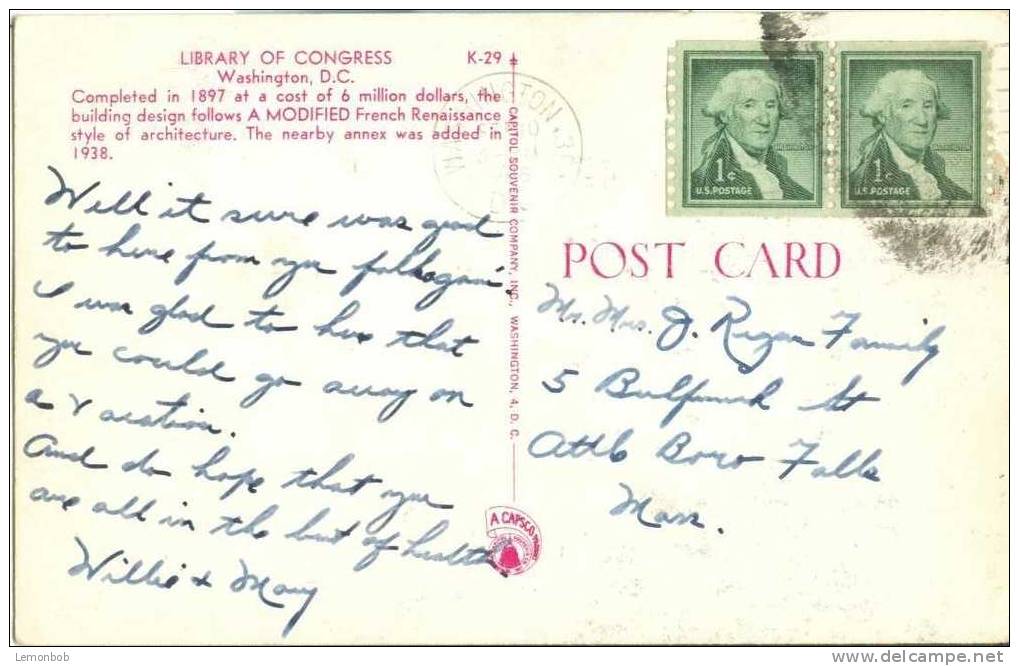 LIBRARY OF CONGRESS K-29
Washington, D.C.
Completed in 1897 at a cost of 6 million dollars, the
building design follows A MODIFIED French Renaissance
style of architecture. The nearby annex was added in
1938.
Well it sure was good
to here from you folks again.
I was glad to hear that
you could go away on
a vacation.
And do hope that you
are all in the best of health.
Willie & Mary
CAPITOL SOUVENIR COMPANY, INC., WASHINGTON, 4, D. C.
A CAPSCO
WASHINGTON
1¢
U.S. POSTAGE
1¢
U.S. POSTAGE
POST CARD
Mr. Mrs. J. Regan Family
5 Bulfinch St
Attle Boro Falls
Mass.
Lemonbob
delcampe.net